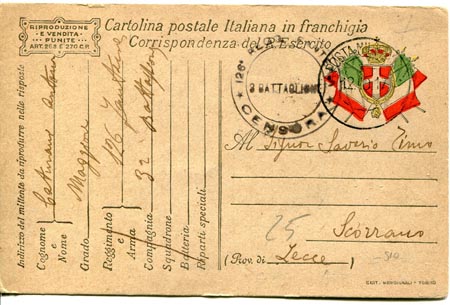 RIPRODUZIONE
E VENDITA
PUNITE
ART. 263 E 270 C.P.
Cartolina postale Italiana in franchigia
Corrispondenza del R. Esercito
126°
3 BATTAGLIONE
CENSURA
POSTA MI
12
Al Signor Saverio
Scorrano
(Prov. di Lecce)
25
Indirizzo del mittente da riprodurre nelle risposte
Cognome
e
Nome
Grado Maggiore
Reggimento 126 Fanteria
e
Arma
Compagnia 3° Battaglione
Squadrone
Batteria
Riparti speciali